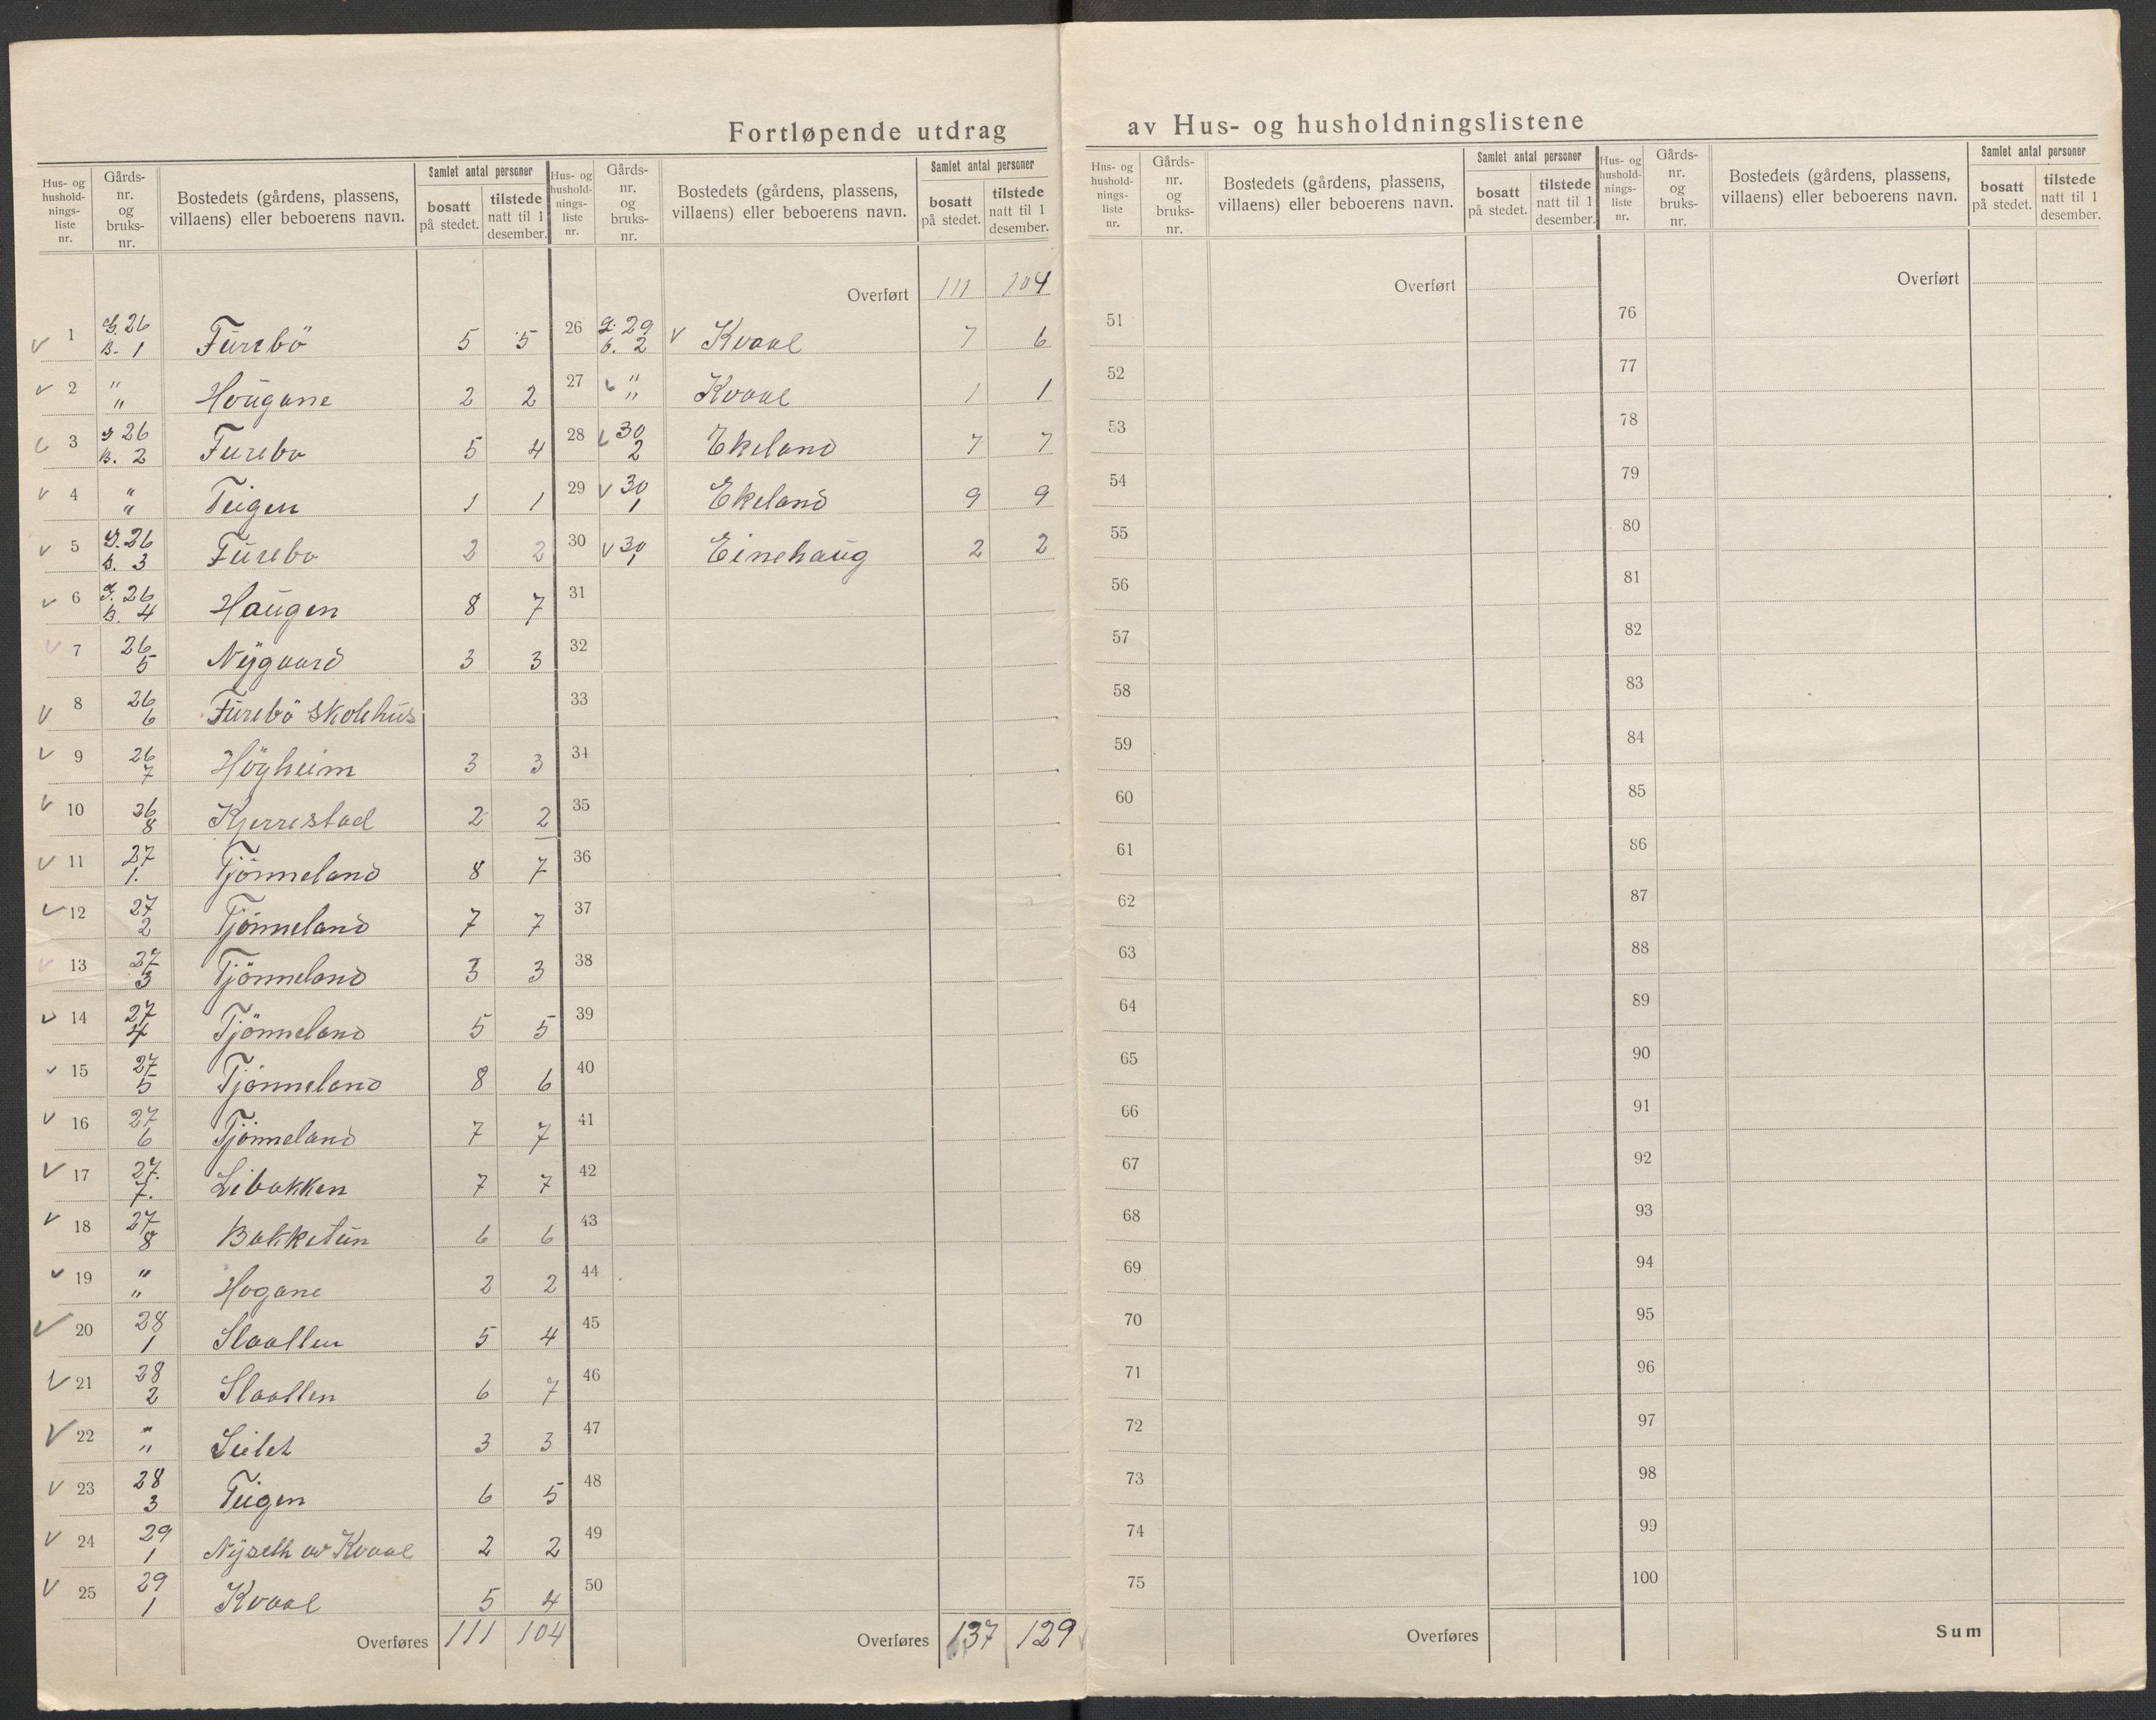 Fortløpende utdrag av Hus- og husholdningslistene
Hus- og hushold-nings-liste nr. | Gårds-nr. og bruks-nr. | Bostedets (gårdens, plassens, villaens) eller beboerens navn. | Samlet antal personer | bosatt på stedet. | tilstede natt til 1 desember.
1 G. 26 B. 1 Furebö 5 5
2 " " Hougane 2 2
3 G 26 B. 2 Furebø 5 4
4 " " Teigen 1 1
5 G. 26 B. 3 Furebø 2 2
6 G. 26 B. 4 Haugen 8 7
7 26 5 Nygaard 3 3
8 26 6 Furebö skolehus
9 26 7 Högheim 3 3
10 26 8 Kjerrestad 2 2
11 27 1. Tjönneland 8 7
12 27 2 Tjönneland 7 7
13 27 3 Tjönneland 3 3
14 27 4 Tjönneland 5 5
15 27 5 Tjönneland 8 6
16 27 6 Tjönneland 7 7
17 27. 7. Libakken 7 7
18 27 8 Bakketun 6 6
19 " " Hogane 2 2
20 28 1 Slaatten 5 4
21 28 2 Slaatten 6 7
22 " " Leitet 3 3
23 28 3 Teigen 6 5
24 29 1 Nyseth av Kvaal 2 2
25 29 1 Kvaal 5 4
Overføres 111 104
Hus- og hushold-nings-liste nr. | Gårds-nr. og bruks-nr. | Bostedets (gårdens, plassens, villaens) eller beboerens navn. | Samlet antal personer | bosatt på stedet. | tilstede natt til 1 desember.
Overført 111 104
26 G. 29 b. 2 Kvaal 7 6
27 " " Kvaal 1 1
28 30 2 Ekeland 7 7
29 30 1 Ekeland 9 9
30 30 1 Einehaug 2 2
31
32
33
34
35
36
37
38
39
40
41
42
43
44
45
46
47
48
49
50
Overføres 137 129
Hus- og hushold-nings-liste nr. | Gårds-nr. og bruks-nr. | Bostedets (gårdens, plassens, villaens) eller beboerens navn. | Samlet antal personer | bosatt på stedet. | tilstede natt til 1 desember.
Overført
51
52
53
54
55
56
57
58
59
60
61
62
63
64
65
66
67
68
69
70
71
72
73
74
75
Overføres
Hus- og hushold-nings-liste nr. | Gårds-nr. og bruks-nr. | Bostedets (gårdens, plassens, villaens) eller beboerens navn. | Samlet antal personer | bosatt på stedet. | tilstede natt til 1 desember.
Overført
76
77
78
79
80
81
82
83
84
85
86
87
88
89
90
91
92
93
94
95
96
97
98
99
100
Sum